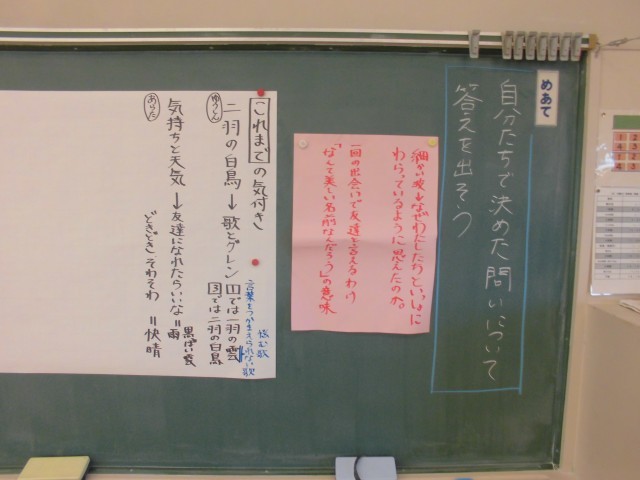 めあて
自分たちで決めた問いについて
答えを出そう
細かい波↓なぜわたしたちといっしょに
わらっているように思えたのか。
一回の出会いで友達と言えるわけ
「なんて美しい名前なんだろう」の意味
これまでの気付き
ゆうしん
二羽の白鳥→歌とグレン
1では一羽の雲
国では二羽の白鳥
言葉もつかまえられない歌
気持ちと天気→友達になれたらいいな=雨
黒っぽい雲
あらた
どきどきそわそわ=快晴